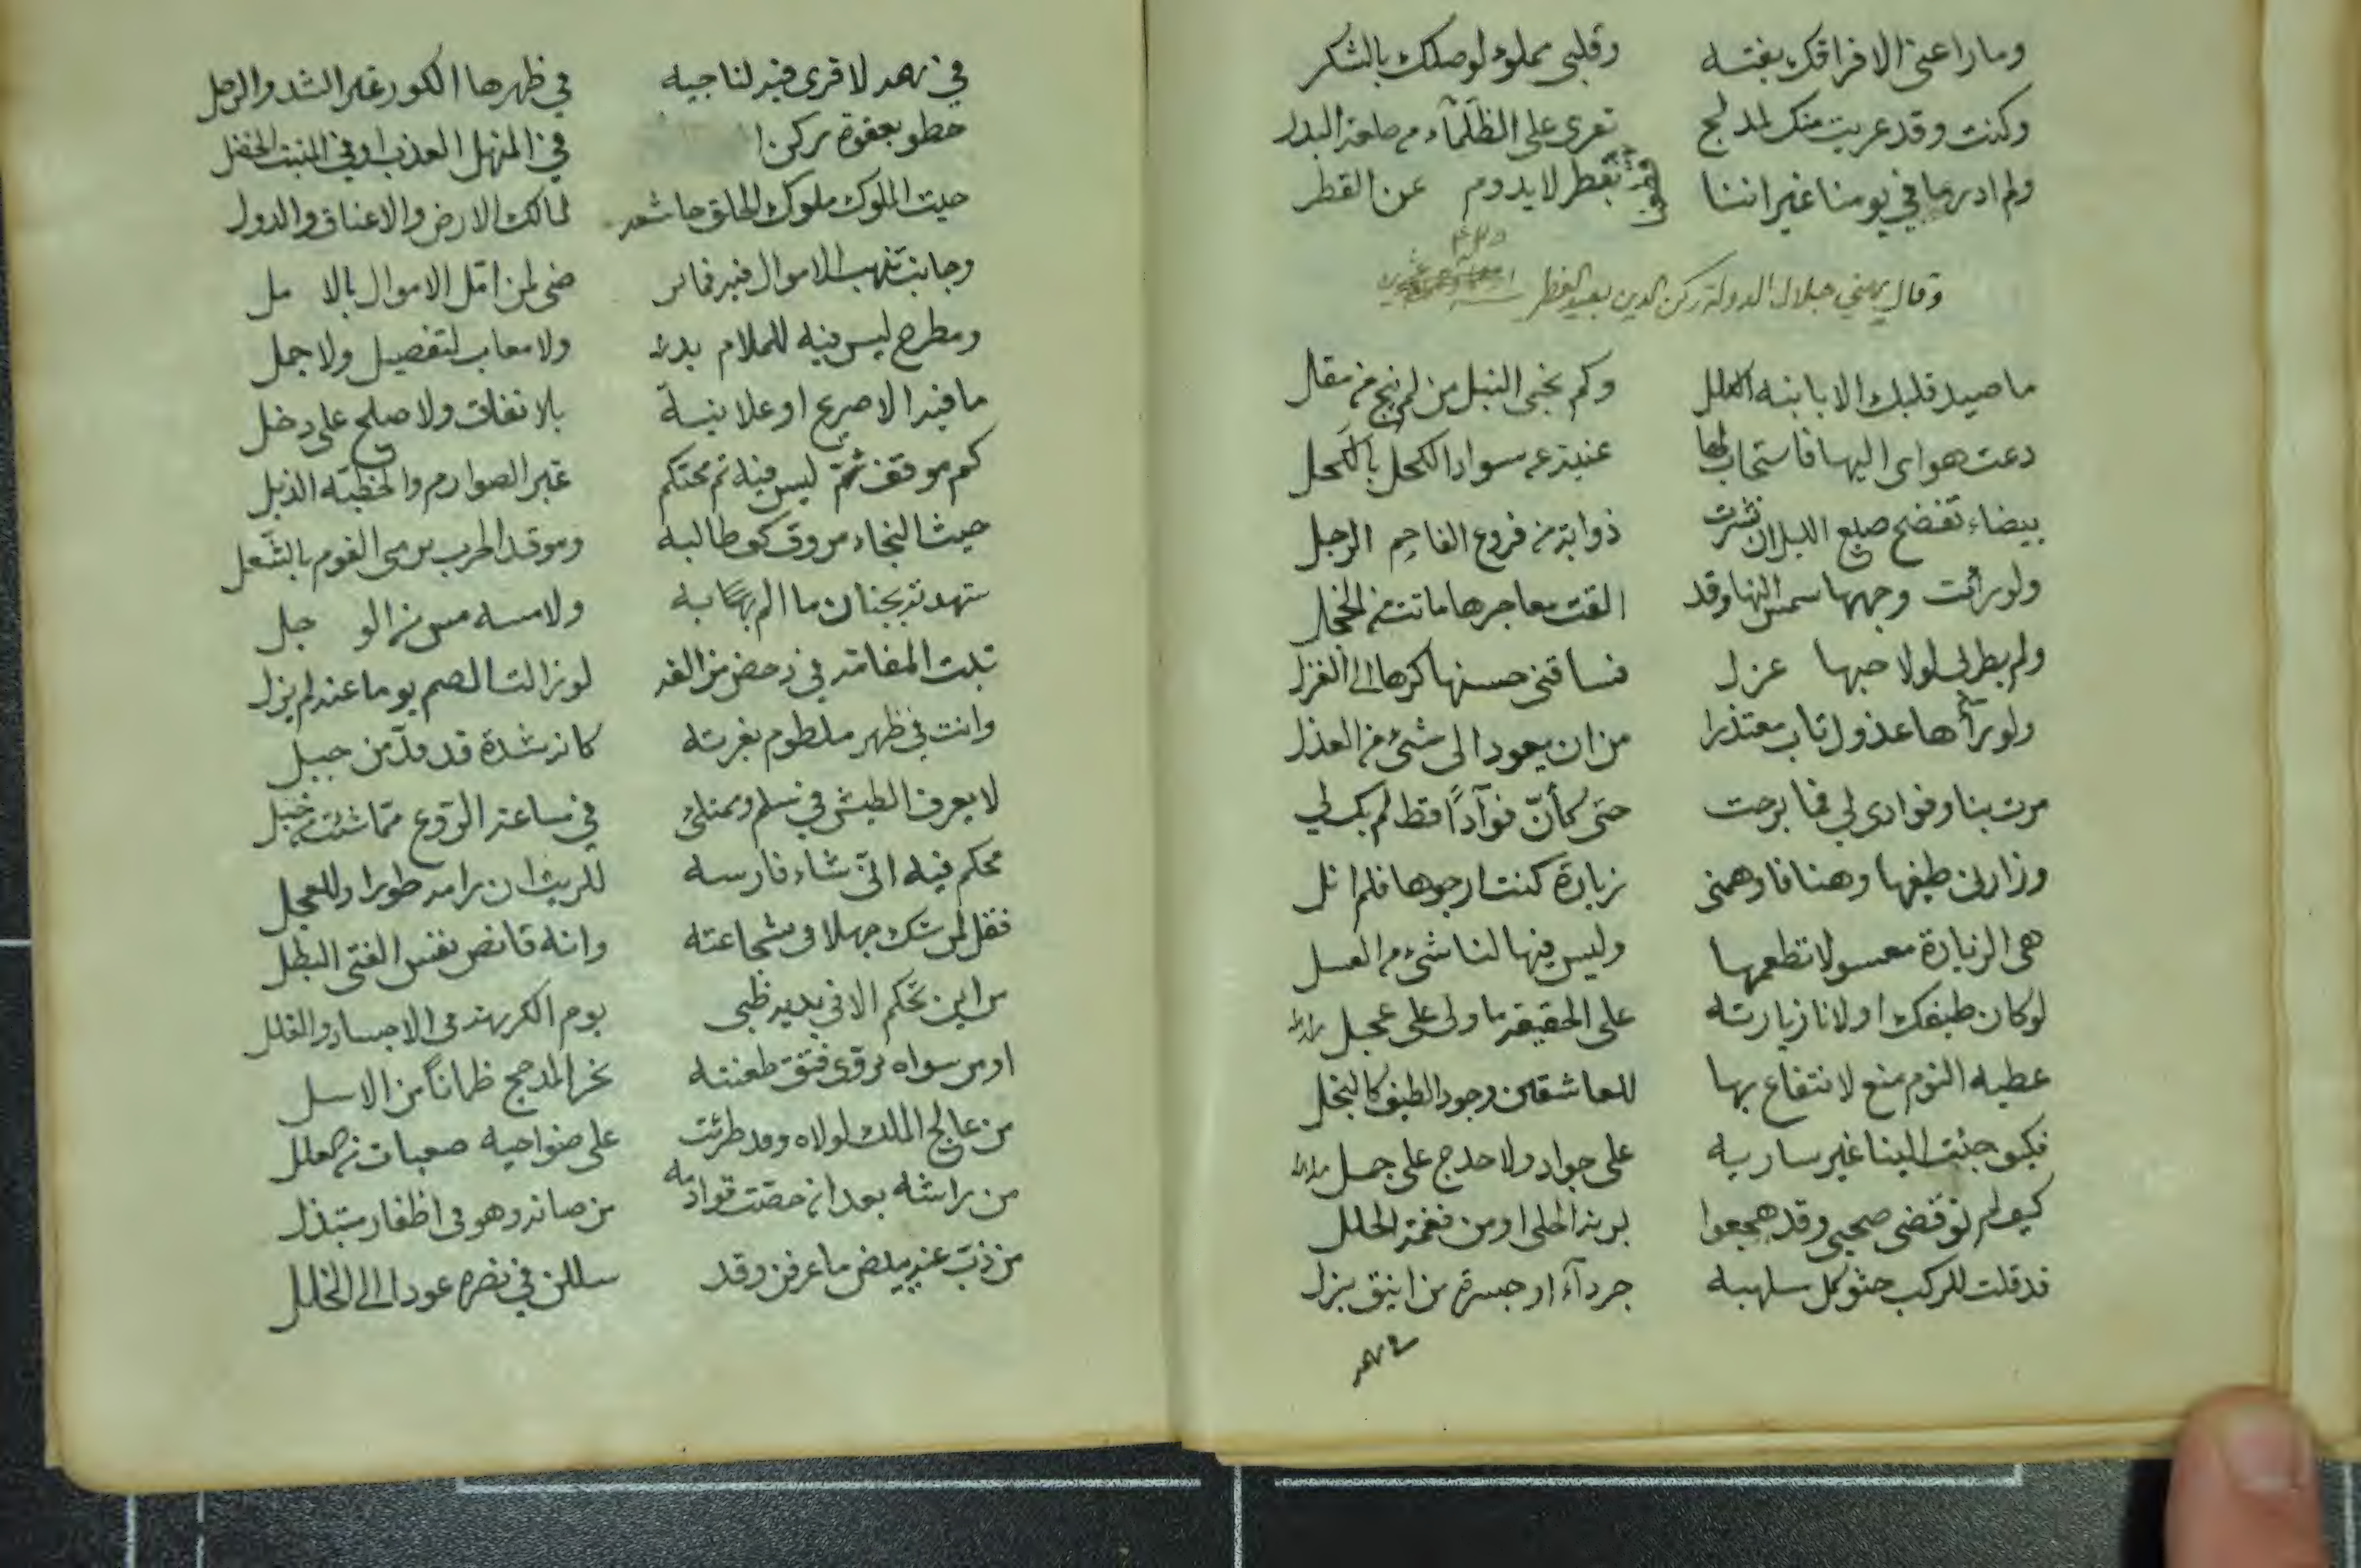 وما راعني الا فراقك بغتة وقلبي مملوء لوصلك بالشكر
وكنت وقد عريت منك لمدلج تعرى على الظلماء من طلعة البدر
ولم ادر ما في يومنا غير اننا نقطر لا يدوم عن القطر
وقال يهني جلال الدولة ركن الدين بعيد الفطر
ما صيد قلبك الا بابنة الكلل وكم نجى النبل من لم ينج من مقل
دعت هواى اليها فاستجاب لها عنية عن سواد الكحل بالكحل
بيضاء تفضح صبع الليل ان نشرت ذوابة من فروع الفاحم الرجل
ولو رأت وجهها شمس النهار وقد القت معاجرها ماتت من الخجل
ولم يطر لى لولا حبها غزل فساقنى حسنها كرها الى الغزل
ولو رآها عذول تاب معتذرا من ان يعود الى شئ من العذل
مرت بنا وفوادى لى فما برحت حتى كأن فوآدًا قط لم يك لي
وزارنى طيفها وهنا فاوهمنى زيارة كنت ارجوها فلم انل
هى الزيارة معسولا تطعمها وليس فيها لنا شئ من العسل
لو كان طيفك اولانا زيارته على الحقيقة ما ولى على عجل
عطية النوم منع لا انتفاع بها للعاشقين وجود الطيف كالبخل
فكيف جئت الينا غير سارية على جواد ولا حدج على جمل
كيف لم توقضى صحبى وقد هجعوا برنة الحلى او من فغمة الحلل
قد قلت للركب حثو كل سلهبة جردآء او جسرة من اينق بزل
في مهمه
في مهمه لا قرى فيه لناجية في ظهرها الكور غير الشد والرحل
حطو بعفوة ركن ا في المنهل العذب او في المنبت الخضل
حيث الملوك ملوك الخلق خاشعة لمالك الارض والاعناق والدول
وجانب تنهب الاموال فيه فما يرضى لمن امل الاموال بالامل
ومطرح ليس فيه للملام يد ولا معاب لتفصيل ولا جمل
ما فيه الا صريح او علانية بلا نفاق ولا صلح على دخل
كم موقف ثم ليس فيه ثم محتكم غير الصوارم والخطية الذبل
حيث النجاء مروق كف طالبه وموقد الحرب يرمى القوم بالشعل
شهدته بجنان ما الم به ولا مسه مس من الوجل
ثبت المقامة في دحض من الغد لو زالت الصم يوما عنه لم يزل
وانت في ظهر ملطوم بغرته كانه شدة قد قد من جبل
لا يعرف الطيش في سلم ويمتلئ في ساعة الروع مما شئت من خبل
محكم فيه انى شاء فارسه للريث ان رامه طورا وللعجل
فقل لمن شك جهلا في شجاعته وانه قانص نفس الفتى البطل
من اين تحكم الا في يديه ظبى يوم الكريهة فى الاجساد والقلل
او من سواه يرقوى فتق طعنته نحر المدجج ظمآنًا من الاسل
من عالج الملك لولاه وقد طرئت على ضواحيه صعبات من العلل
من راشه بعد ان حصت قوادمه من صانه وهو في اظفار مبتذل
من ذب عنه ببيض ما عرفن وقد سللن في نصره عودا الى الخلل